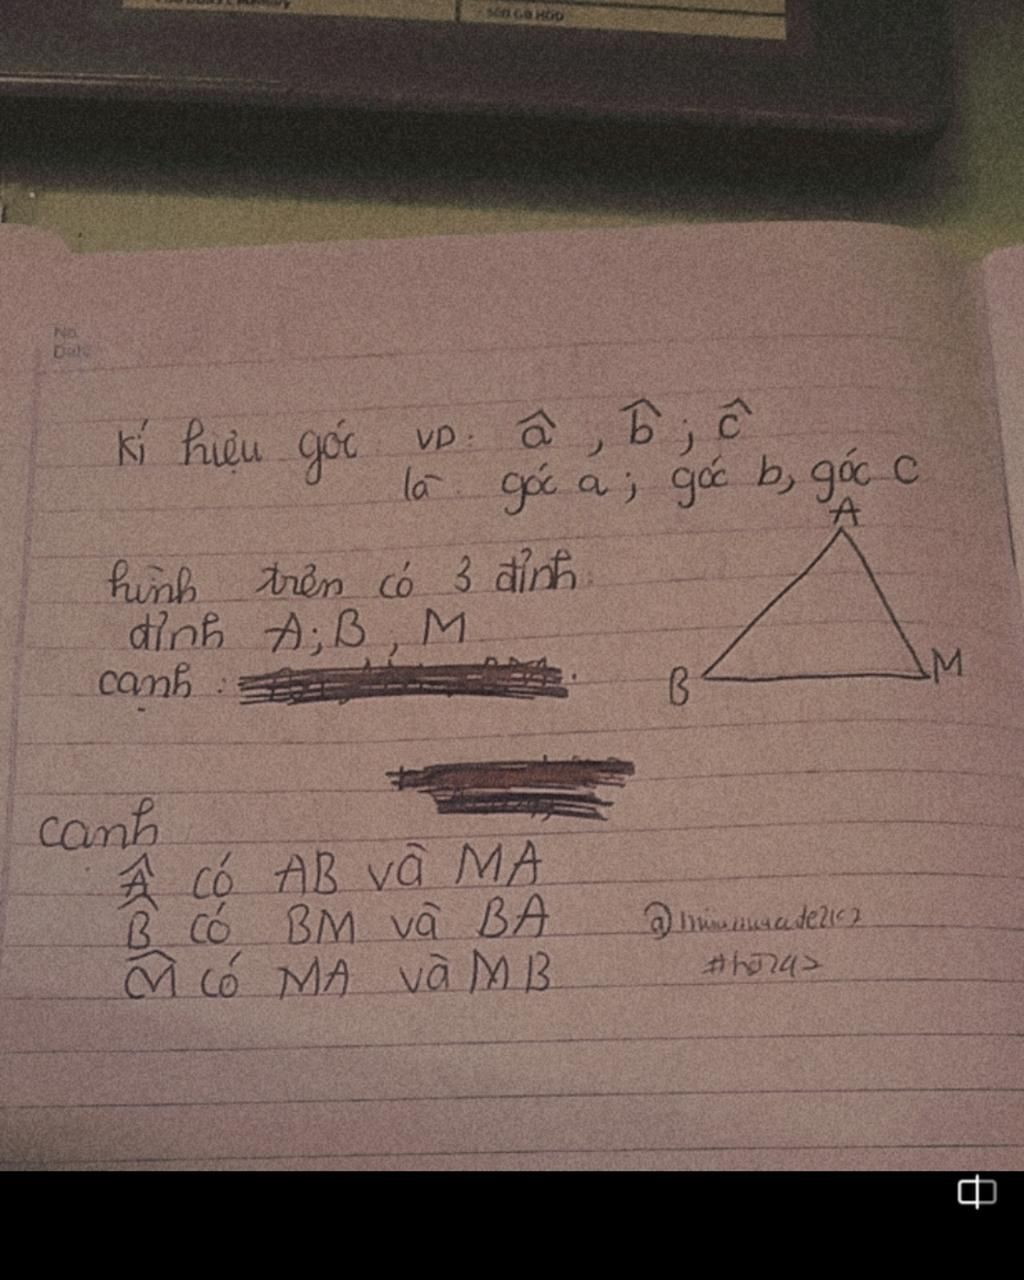 500 GB HDD
No.
Date
Kí hiệu góc VD: â, b̂; ĉ
là góc a; góc b, góc c
hình trên có 3 đỉnh:
đỉnh A; B, M
cạnh :
A
B
M
cạnh
Â có AB và MA
B̂ có BM và BA
M̂ có MA và MB